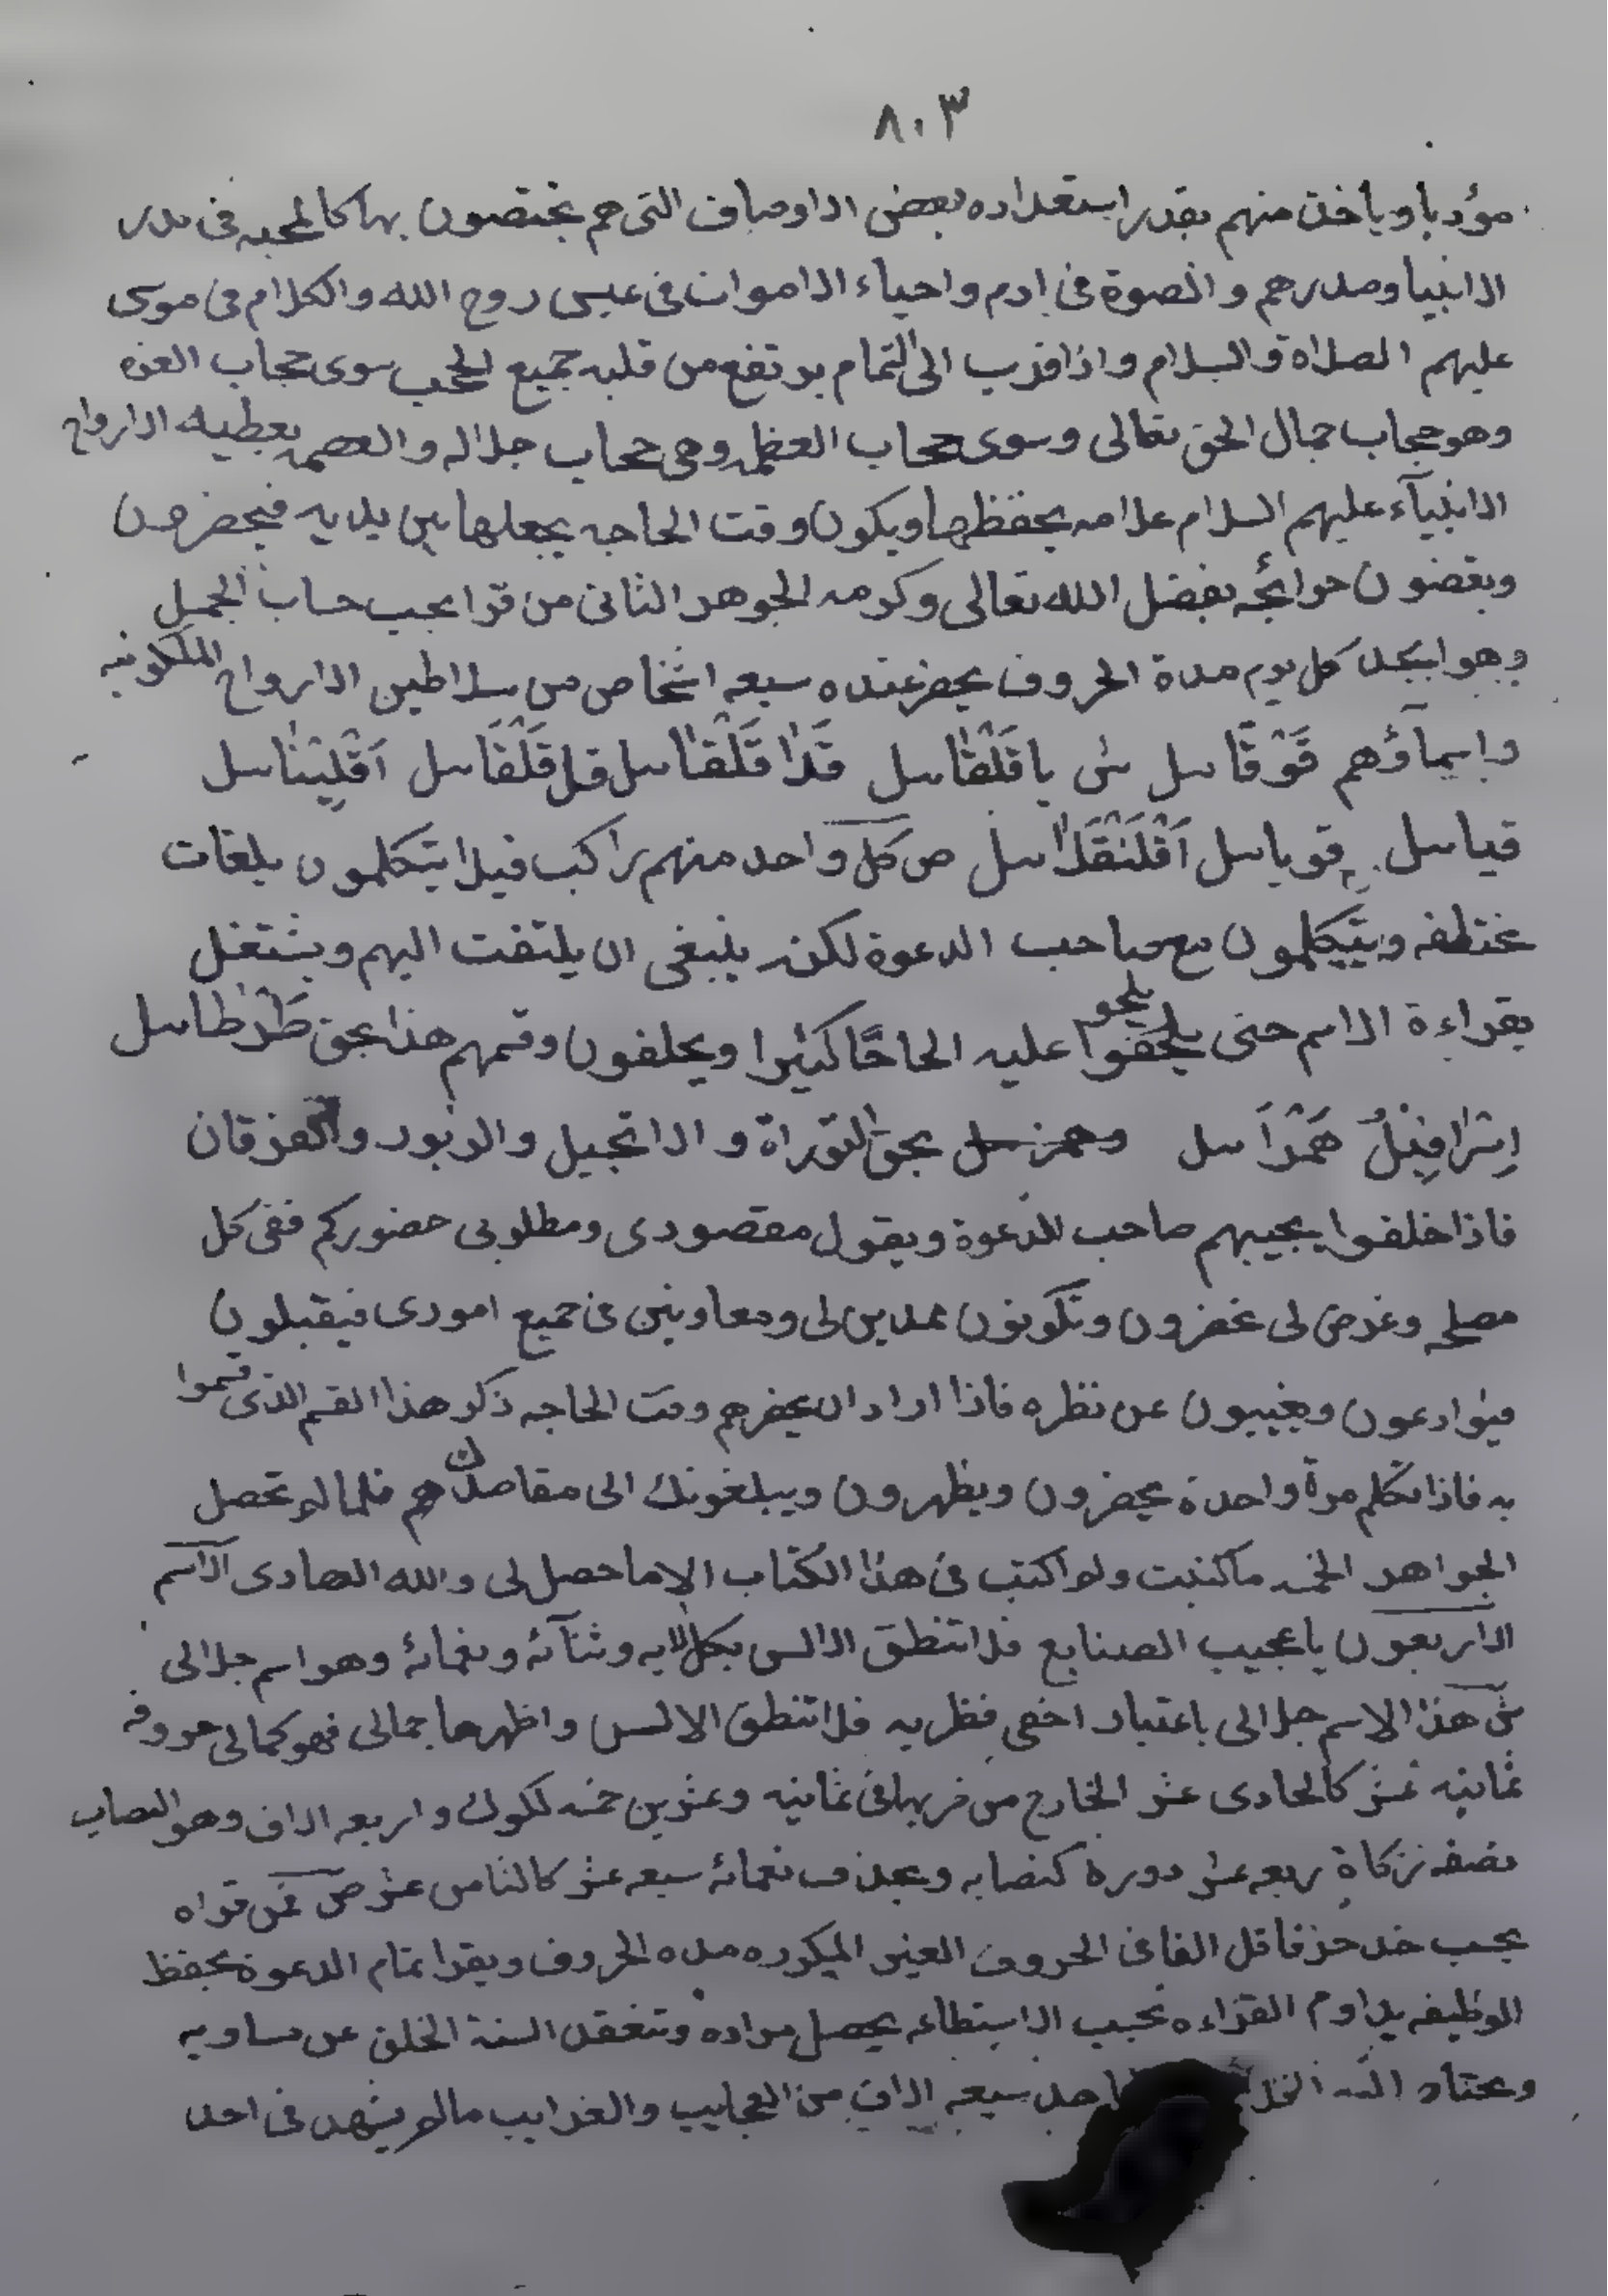 ٨٠٣
مؤدبا وياخذ منهم بقدر استعداده بعض الاوصاف التى هم يختصون بها كالمحبه فى بدر
الانبيا وصدرهم والصفوة فى ادم واحياء الاموات فى عيسى روح الله والكلام فى موسى
عليهم الصلاة والسلام واذا قرب الى التمام يرتفع من قلبه جميع الحجب سوى حجاب العزه
وهو حجاب جمال الحق تعالى وسوى حجاب العظمه وهى حجاب جلاله والعصمه يعطيه الارواح
الانبيآء عليهم السلام علامه يحفظها ويكون وقت الحاجه يجعلها بين يديه فيحضرون
ويقضون حوائجه بفضل الله تعالى وكرمه الجوهر الثانى من قرا عجيب حساب الجمل
وهو ابجد كل يوم مدة الحروف يحضر عنده سبعه اشخاص من سلاطين الارواح الملكوتيه
واسمآؤهم قَوْقَاىىل ىى ياقَلْقَاىىل قَلَا قَلْقَاىىل قل قَلْقَاىىل اَقْلِيْتَاىىل
قياىىل قوياىىل اَقْلَنْقَلَاىىل ص كل واحد منهم راكب فيلا يتكلمون بلغات
مختلفه ويتكلمون مع صاحب الدعوة لكنه ينبغى ان يلتفت اليهم ويشتغل
بقراءة الاسم حتى يلحفوا يلحو عليه الحاحًا كثيرا ويحلفون وقسمهم هذا بحق طَرْطَاىىل
اِسْرَافِيْلُ هَمْرَاىىل وهمزىىل بحق التوراة والانجيل والزبور والفرقان
فاذا خلفوا يجيبهم صاحب الدعوة ويقول مقصودى ومطلوبى حضوركم ففى كل
مصلحه وغرض لى تحضرون وتكونون ممدين لى ومعاونين فى جميع امورى فيقبلون
فيوادعون ويغيبون عن نظره فاذا اراد ان يحضرهم وقت الحاجه ذكر هذا القسم الذى قسموا
به فاذا تكلم مرة واحدة يحضرون ويظهرون ويبلغونك الى مقاصدك هم فلما لم تحصل
الجواهر الخمسه ما كتبت ولم اكتب فى هذا الكتاب الا ما حصل لى والله الهادى الاسم
الاربعون يا عجيب الصنايع فلا تنطق الالسن بكل الايه وثنآئه ونعمائه وهو اسم جلالى
ش هذا الاسم جلالى باعتبار اخفى فظر به فلا تنطق الالسن واظهرها جمالى فهو كمالى حروفه
ثمانيه عشر كالحادى عشر الخارج من ضربها فى ثمانيه وعشرين خمسه لكوك واربعه الاف وهو النصاب
نصفه زكاة ربعه عشر دوره كنصابه وبحذف نعمائه سبعه عشر كالثامن عشر ص فمن قراه
بحسب الحروف الغير المكرره مده الحروف ويقرا تمام الدعوة بحفظ
الوظيفه يداوم القراءه بحسب الاستطاعه يحصل مراده وتنعقد السنة الخلق عن مساويه
سبعه الاف من العجايب والغرايب ما لم يشهد فى احد